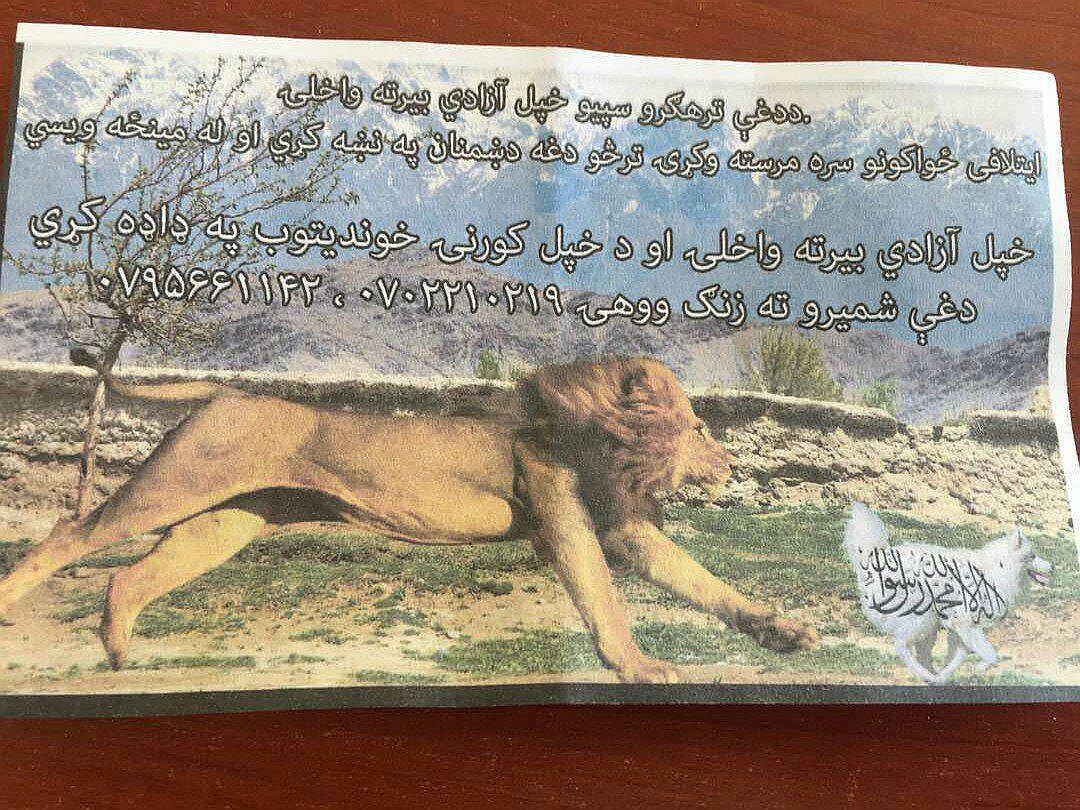 .ددغې ترهګرو سپیو خپل آزادي بیرته واخلۍ
ایتلافی ځواکونو سره مرسته وکړۍ ترڅو دغه دښمنان په نښه کړي او له مینځه ویسي
خپل آزادي بیرته واخلۍ او د خپل کورنۍ خوندیتوب په ډاډه کړي
دغې شمیرو ته زنګ ووهۍ ۰۷۰۲۲۱۰۲۱۹ ، ۰۷۹۵۶۶۱۱۴۲
لا اله الا الله محمد رسول الله